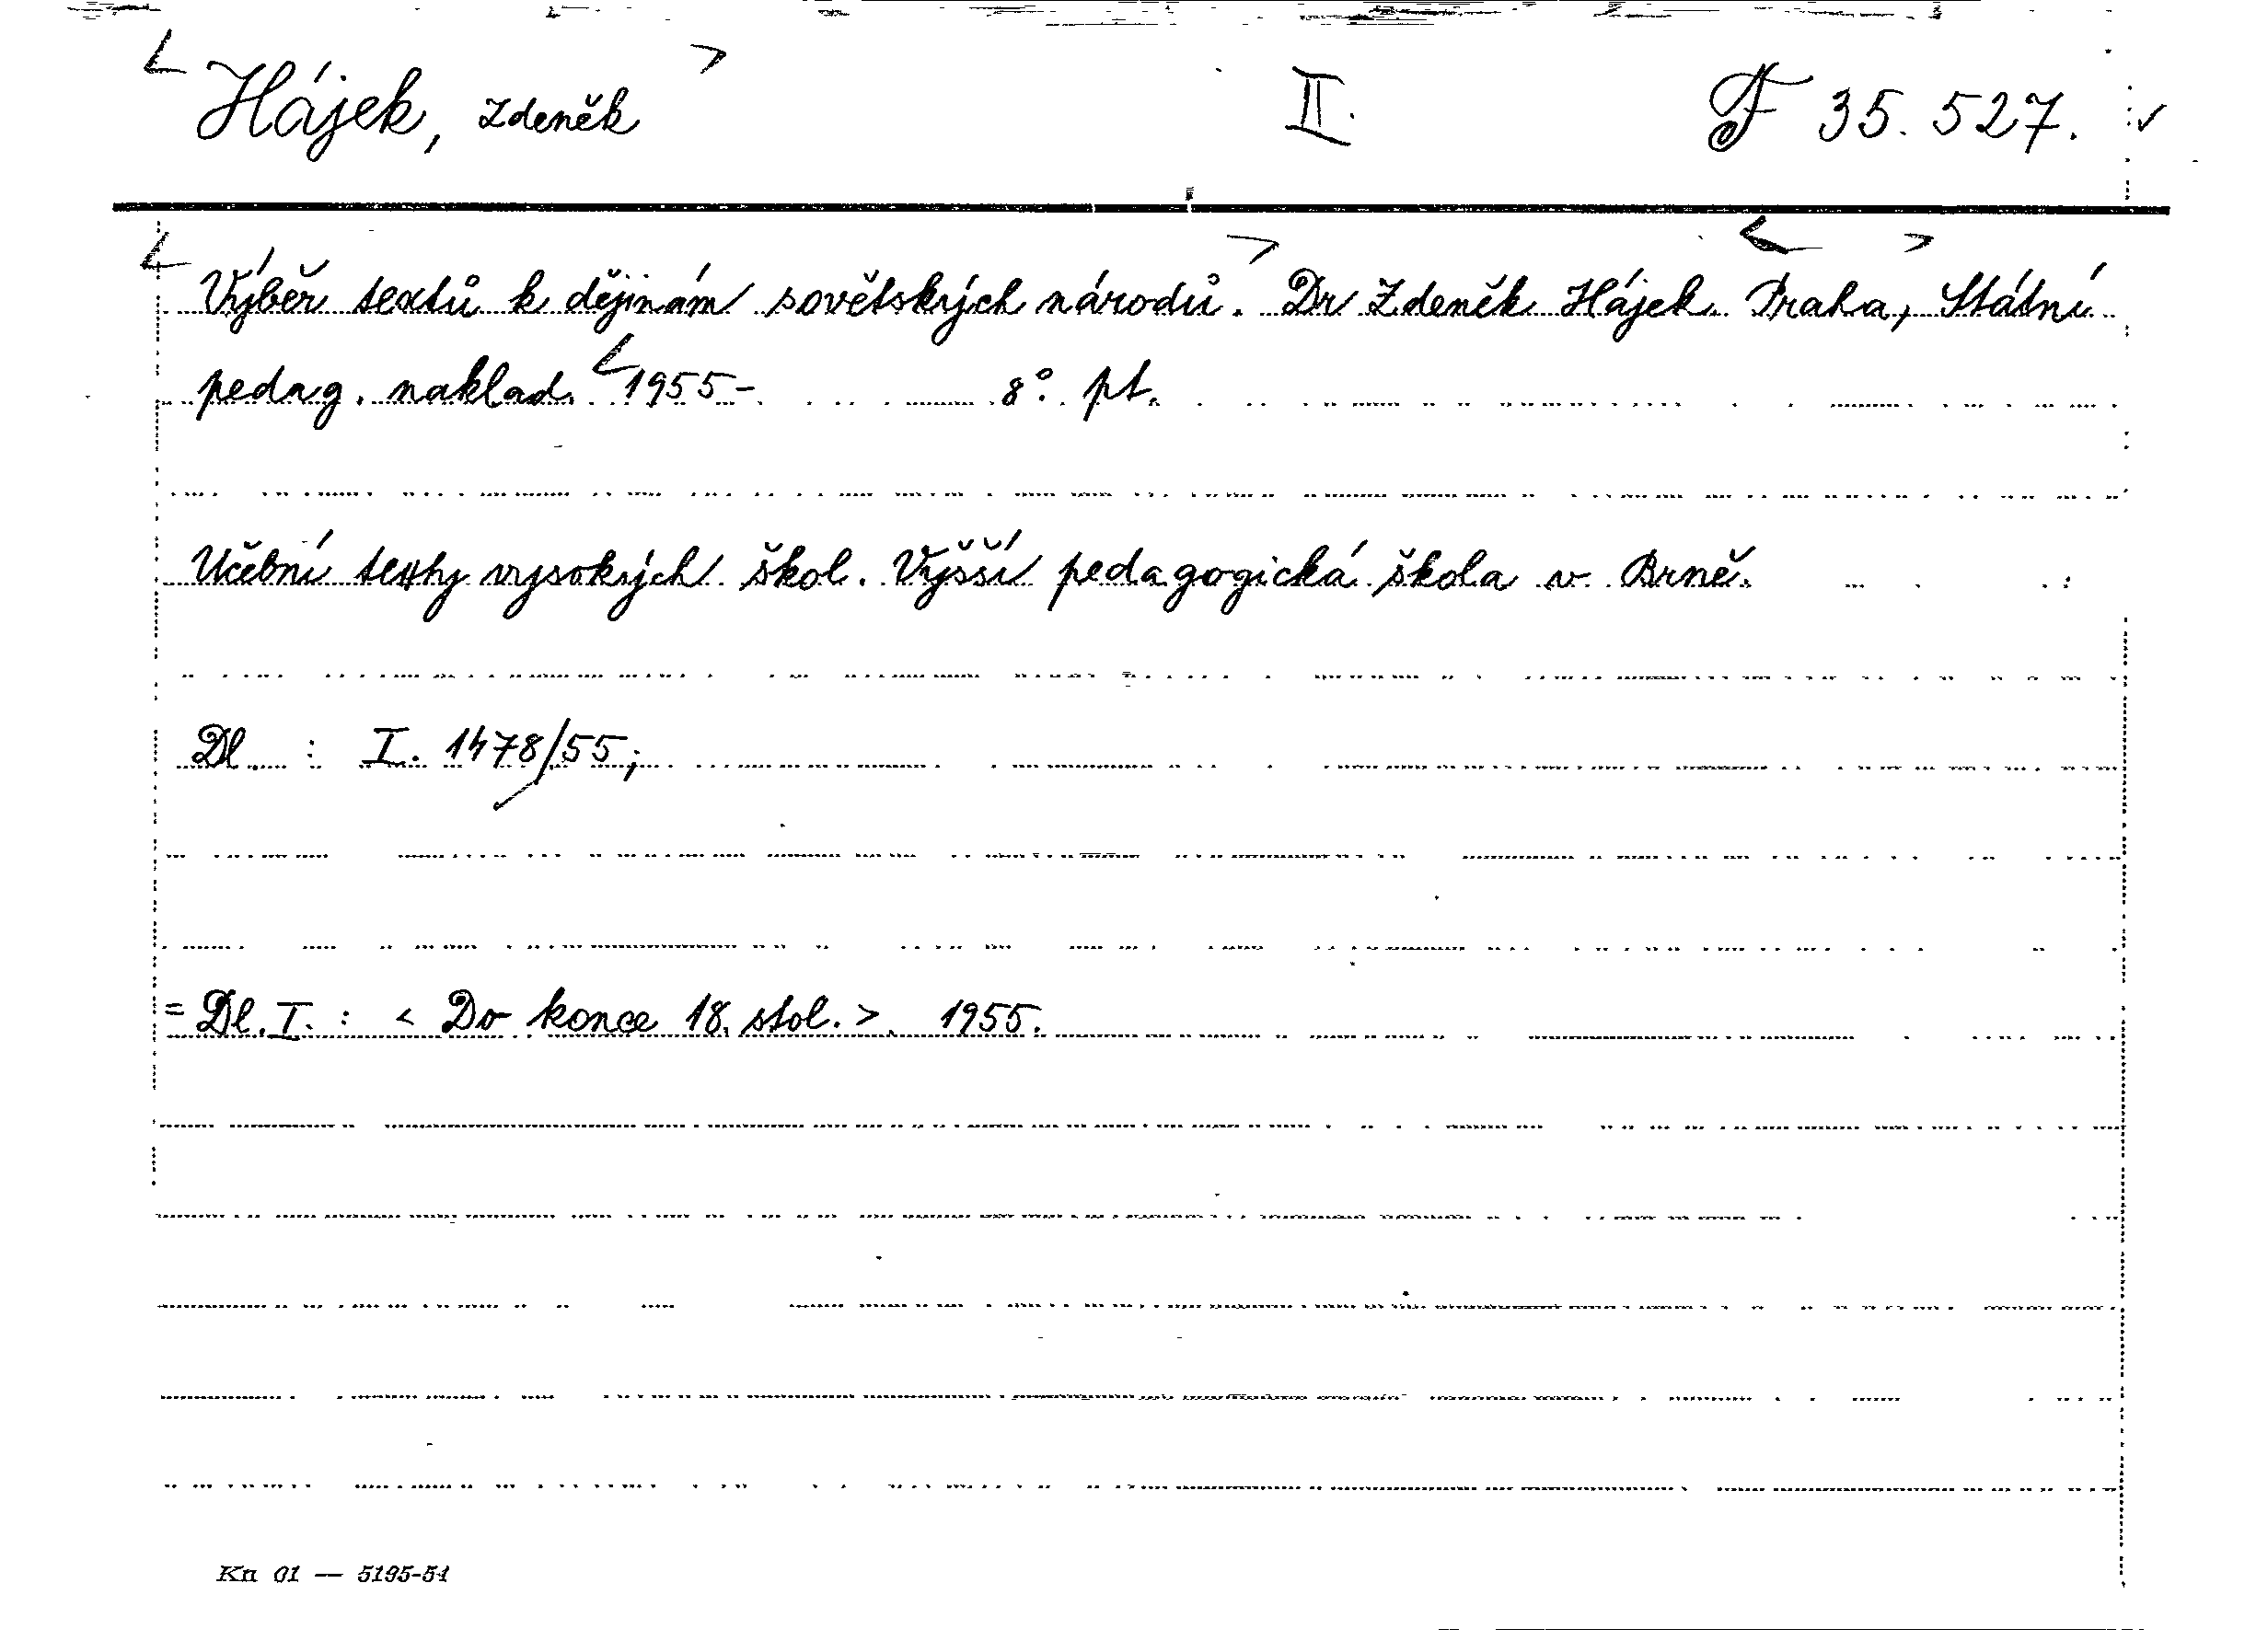 <Hájek, Zdeněk> II. F 35.527.
<Výběr textů k dějinám sovětských národů.> Dr Zdeněk Hájek. <Praha>, Státní
pedag. naklad. <1955- 8°. pt.
Učební texty vysokých škol. Vyšší pedagogická škola v Brně.
Dl. : I. 1478/55;
= Dl. I. : <Do konce 18. stol.>. 1955.
Kn 01 — 5195-54